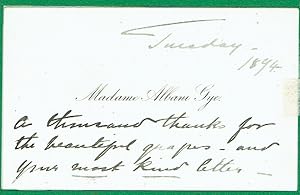 Tuesday -
1894
Madame Albani Gye.
A thousand thanks for
the beautiful grapes - and
your most kind letter -